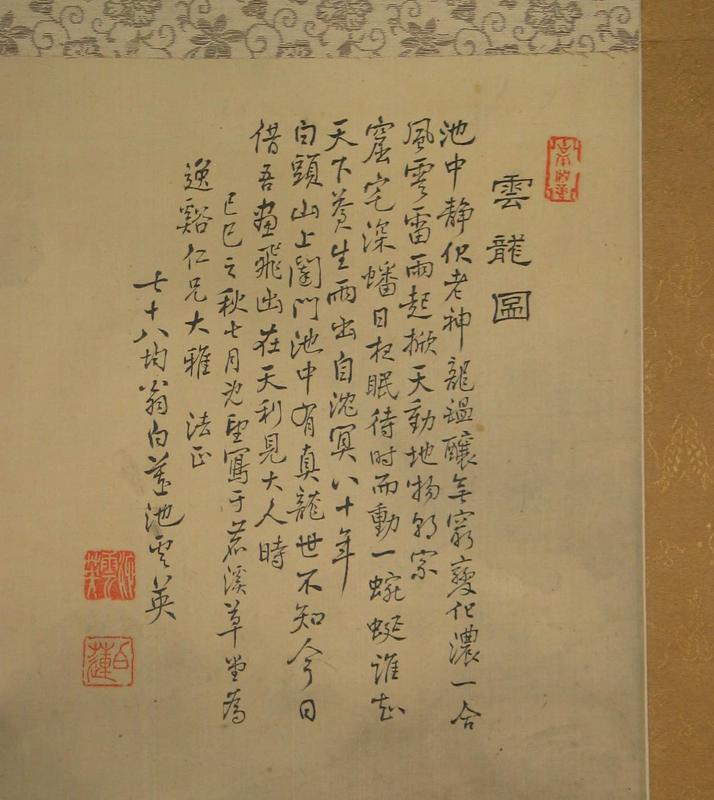 雲龍圖
池中靜伏老神龍醞釀無窮變化濃一合
風雲雷雨起掀天動地物為宗
窟宅深蟠日夜眠待時而動一蜿蜒誰知
天下蒼生雨出自沈冥八十年
白頭山上闥門池中有真龍世不知今日
借吾畫飛出在天利見大人時
己巳之秋七月旣望寫于茗溪草堂為
逸谿仁兄大雅 法正
七十八均翁白蓮池雲英
池雲英
白蓮